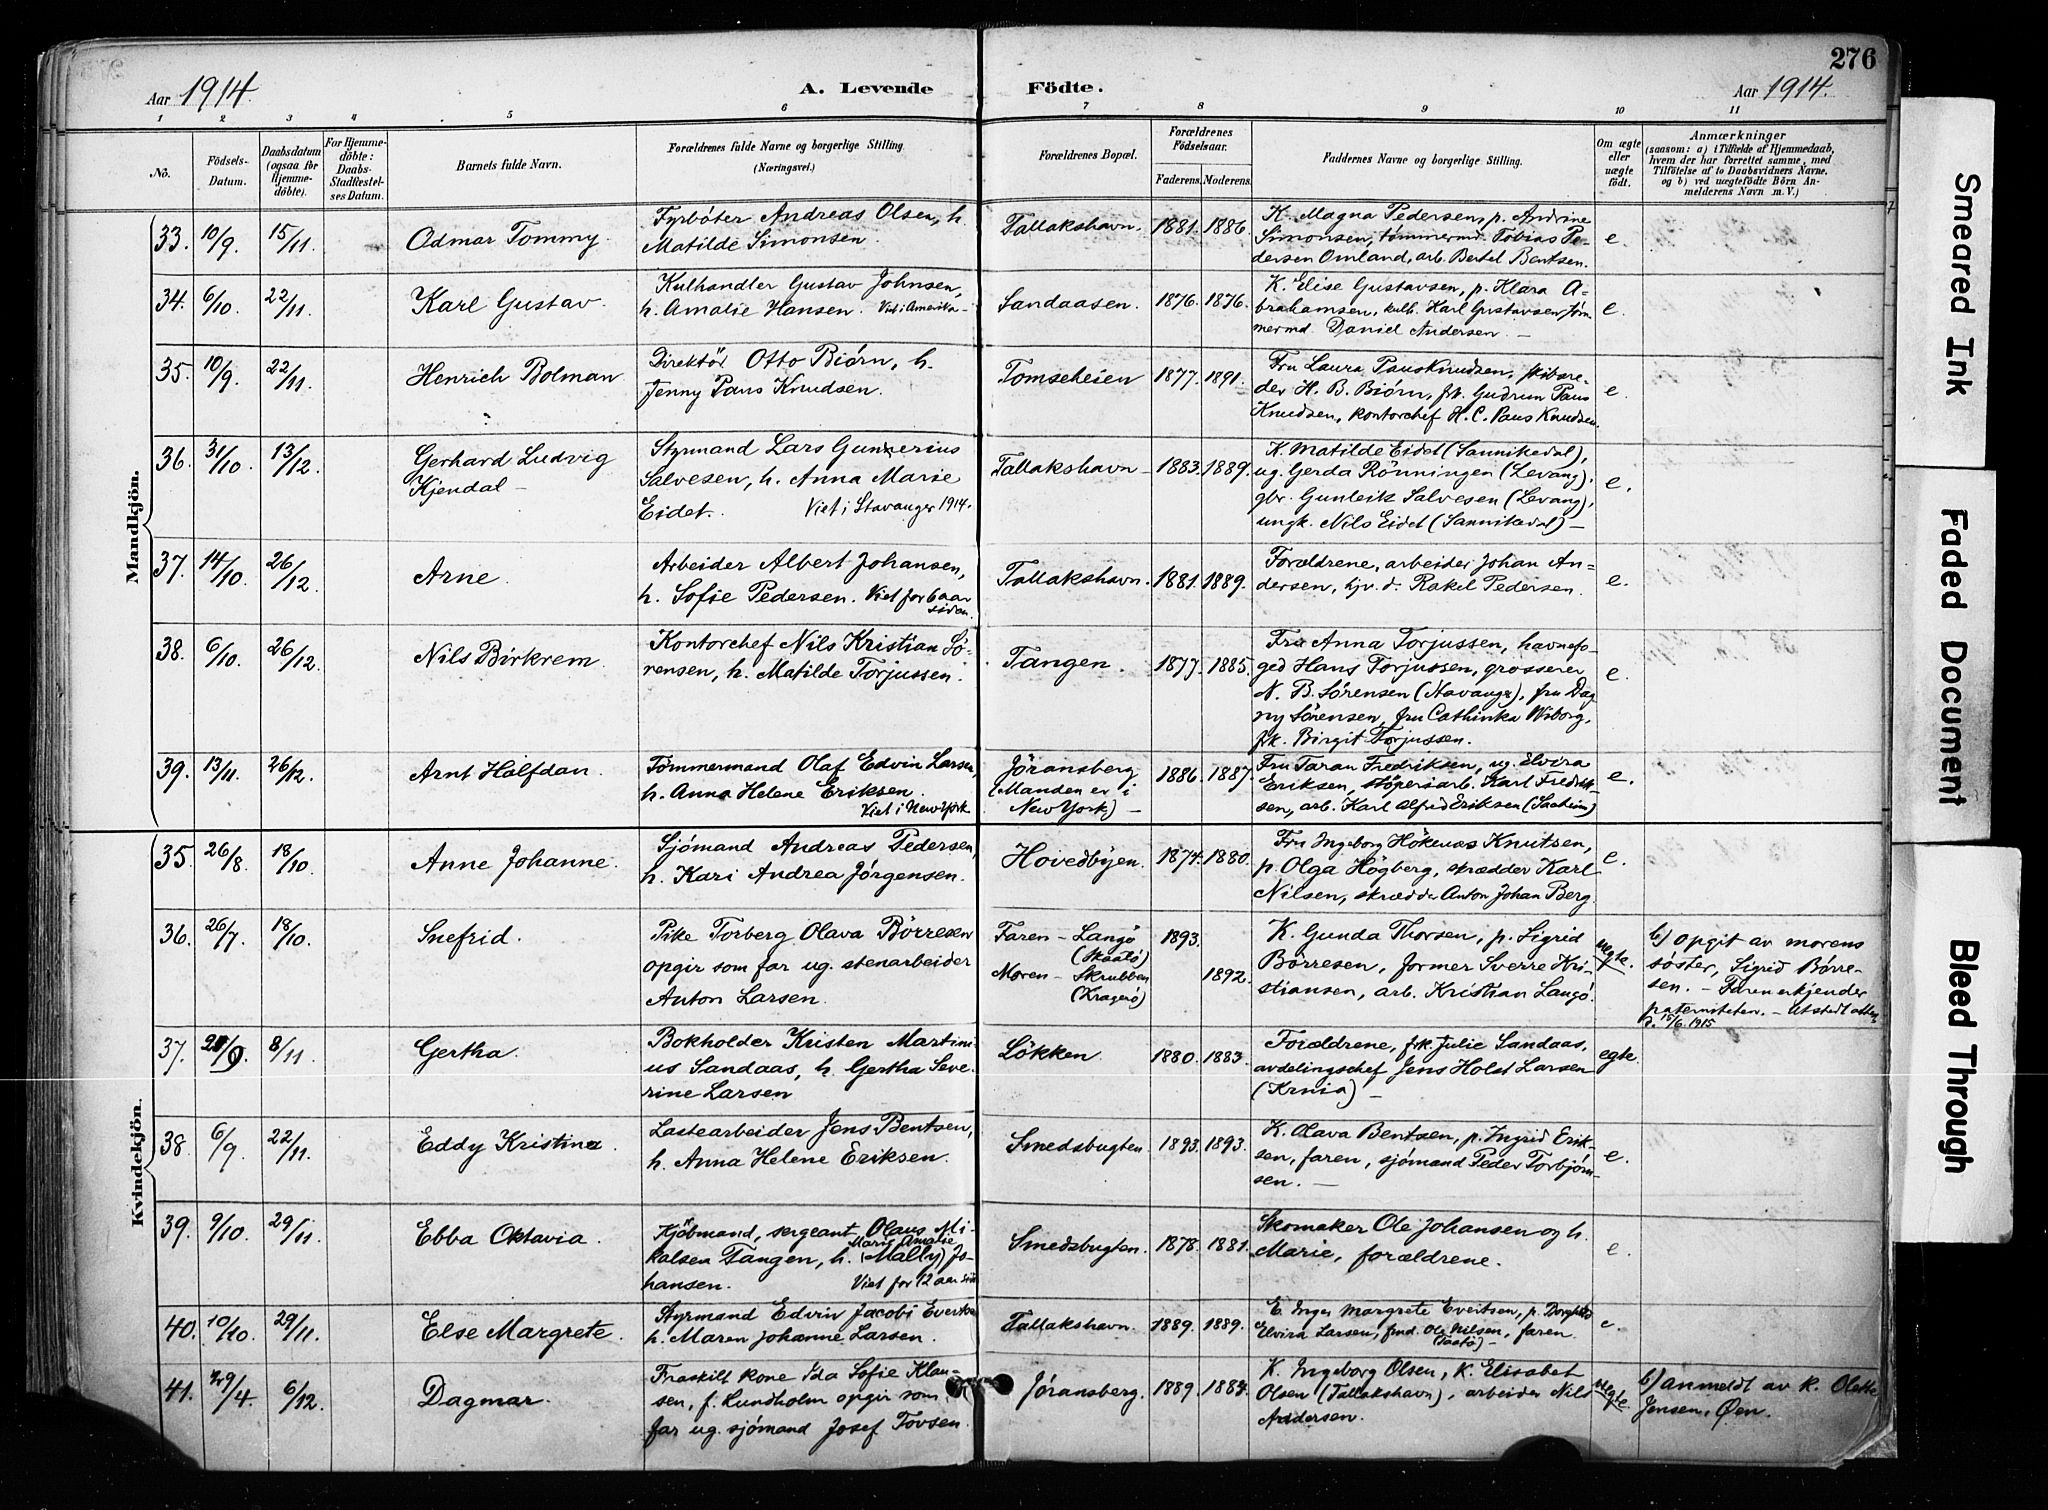 276
Aar 1914.
A. Levende Födte.
Aar 1914.
1 2 3 4 5 6 7 8 9 10 11
No.
Födsels-
Datum.
Daabsdatum
(ogsaa for
Hjemme-
döbte).
For Hjemme-
döbte:
Daabs-
Stadfæstel-
ses Datum.
Barnets fulde Navn.
Forældrenes fulde Navne og borgerlige Stilling
(Næringsvei.)
Forældrenes Bopæl.
Forældrenes
Födselsaar.
Faderens. Moderens.
Faddernes Navne og borgerlige Stilling.
Om ægte
eller
uægte
födt.
Anmærkninger
(saasom: a) i Tilfælde af Hjemmedaab,
hvem der har forrettet samme, med
Tilföielse af to Daabsvidners Navne,
og b) ved uægtefödte Börn An-
melderens Navn m. V.)
Mandkjön.
33. 10/9. 15/11. Odmar Tommy.
Fyrböter Andreas Olsen, h.
Matilde Simonsen.
Tallakshavn. 1881. 1886.
K. Magna Pedersen, p. Andrine
Simonsen, tömmermd. Tobias Pe-
dersen Omland, arb. Bertel Bentsen.
e.
34. 6/10. 22/11. Karl Gustav.
Kulhandler Gustav Johnsen,
h. Amalie Hansen. Viet i Amerika.
Sandaasen. 1876. 1876.
K. Elise Gustavsen, p. Klara A-
brahamsen, kulh. Karl Gustavsen, töm-
mermd. Daniel Andersen.
e.
35. 10/9. 22/11. Henrich Bolman
Direktör Otto Biörn, h.
Jenny Paus Knudsen.
Tomseheien 1877. 1891.
Fru Laura Paus Knudsen, skibsre-
der H. B. Biörn, frk. Gudrun Paus
Knudsen, kontorchef H. C. Paus Knudsen.
e.
36. 31/10. 13/12. Gerhard Ludvig
Kjendal
Styrmand Lars Gunnerius
Salvesen, h. Anna Marie
Eidet. Viet i Stavanger 1914.
Tallakshavn 1883. 1889.
K. Matilde Eidet (Sannikedal),
ug. Gerda Rönningen (Levang),
gbr. Gunleik Salvesen (Levang),
ungk. Nils Eidet (Sannikedal)
e.
37. 14/10. 26/12. Arne.
Arbeider Albert Johansen,
h. Sofie Pedersen. Viet for 6 aar
siden.
Tallakshavn. 1881. 1889.
Forældrene, arbeider Johan An-
dersen, hjv. d. Rakel Pedersen.
e.
38. 6/10. 26/12. Nils Birkrem.
Kontorchef Nils Kristian Sö-
rensen, h. Matilde Torjussen.
Tangen. 1877. 1885.
Fru Anna Torjussen, havnefo-
ged Hans Torjussen, grosserer
N. B. Sörensen (Stavanger), fru Dag
ny Sörensen, fru Cathinka Wiborg,
frk. Birgit Torjussen.
e.
39. 13/11. 26/12. Arnt Halfdan.
Tömmermand Olaf Edvin Larsen,
h. Anna Helene Eriksen.
Viet i New York
Jöransberg
(Manden er i
New York)
1886. 1887.
Fru Taran Fredriksen, ug. Elvira
Eriksen, stöperiarb. Karl Fredrik-
sen, arb. Karl Alfred Eriksen (Saaheim)
e.
Kvindekjön.
35. 26/8. 18/10. Anne Johanne.
Sjömand Andreas Pedersen,
h. Kari Andrea Jörgensen.
Hovedbyen. 1874. 1880.
Fru Ingeborg Hökenæs Knutsen,
p. Olga Högberg, skrædder Karl
Nilsen, skrædder Anton Johan Berg.
e.
36. 26/7. 18/10. Snefrid.
Pike Torberg Olava Börresen
opgir som far ug. stenarbeider
Anton Larsen.
Faren - Langö
(Skaatö)
Moren - Skrubben
(Kragerö)
1893.
1892.
K. Gunda Thorsen, p. Sigrid
Börresen, former Sverre Kri-
stiansen, arb. Kristian Langö.
uegte.
b) Opgit av morens
söster, Sigrid Börre-
sen. - Faren erkjender
paterniteten. - Utstedt attest
d. 15/6. 1915
37. 8/11. Gertha.
Bokholder Kristen Martini-
us Sandaas, h. Gertha Seve-
rine Larsen
Lökken 1880. 1883.
Forældrene, frk. Julie Sandaas,
avdelingschef Jens Holst Larsen
(Krnia)
egte.
38. 6/9. 22/11. Eddy Kristine.
Lastearbeider Jens Bentsen,
h. Anna Helene Eriksen.
Smedsbugten 1893. 1893.
K. Olava Bentsen, p. Ingrid Erik-
sen, faren, sjömand Peder Torbjörn-
sen.
e.
39. 9/10. 29/11. Ebba Oktavia.
Kjöbmand, sergeant Olaus Mi-
Marie Amalie
kalsen Tangen, h. (Mally) Jo-
hansen. Viet for 12 aar siden
Smedsbugten. 1878. 1881.
Skomaker Ole Johansen og h.
Marie, forældrene.
e.
40. 10/10. 29/11. Else Margrete.
Styrmand Edvin Jacobi Evertsen
h. Maren Johanne Larsen.
Tallakshavn. 1889. 1889.
E. Inger Margrete Evertsen, p.
Elvira Larsen, fmd. Ole Nilsen, faren.
(Taatö)
e.
41. 29/4. 6/12. Dagmar.
Fraskilt kone Ida Sofie Klau-
sen, f. Lundholm opgir som
far ug. sjömand Josef Tovsen.
Jöransberg. 1889.
K. Ingeborg Olsen, K. Elisabet
Olsen (Tallakshavn), arbeider Nils
Andersen.
uegte.
b) anmeldt av K. Olette
Jensen, Øen.
Smeared Ink
Faded Document
Bleed Through